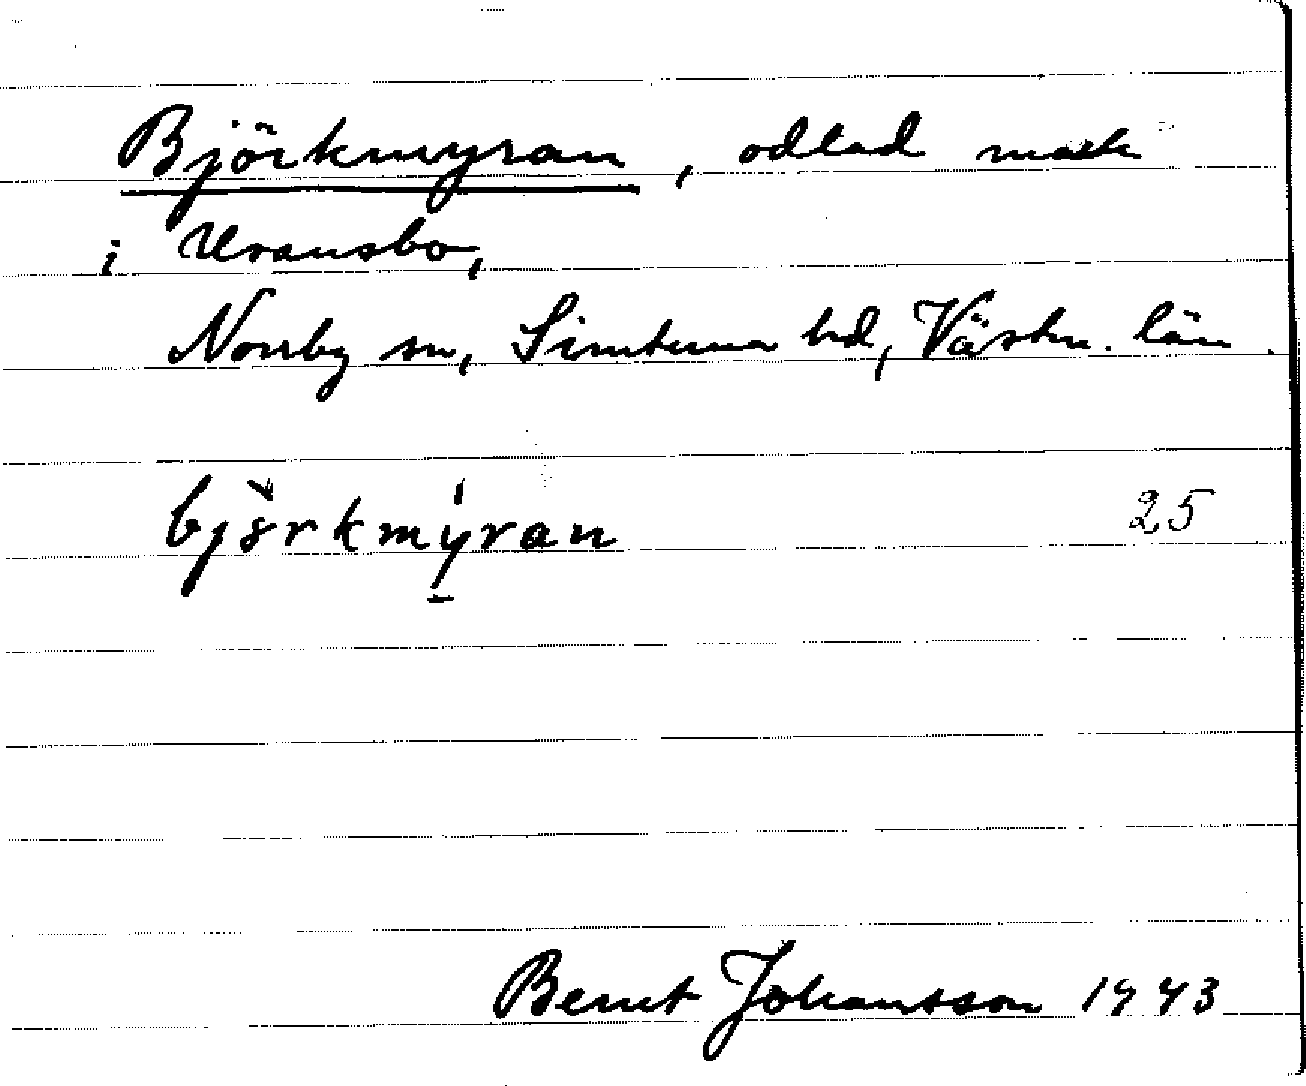 Björkmyran, odlad mark
i Uransbo,
Norrby sn, Simtuna hd, Västm. län.
björkmyran 25
Bernt Johansson 1943